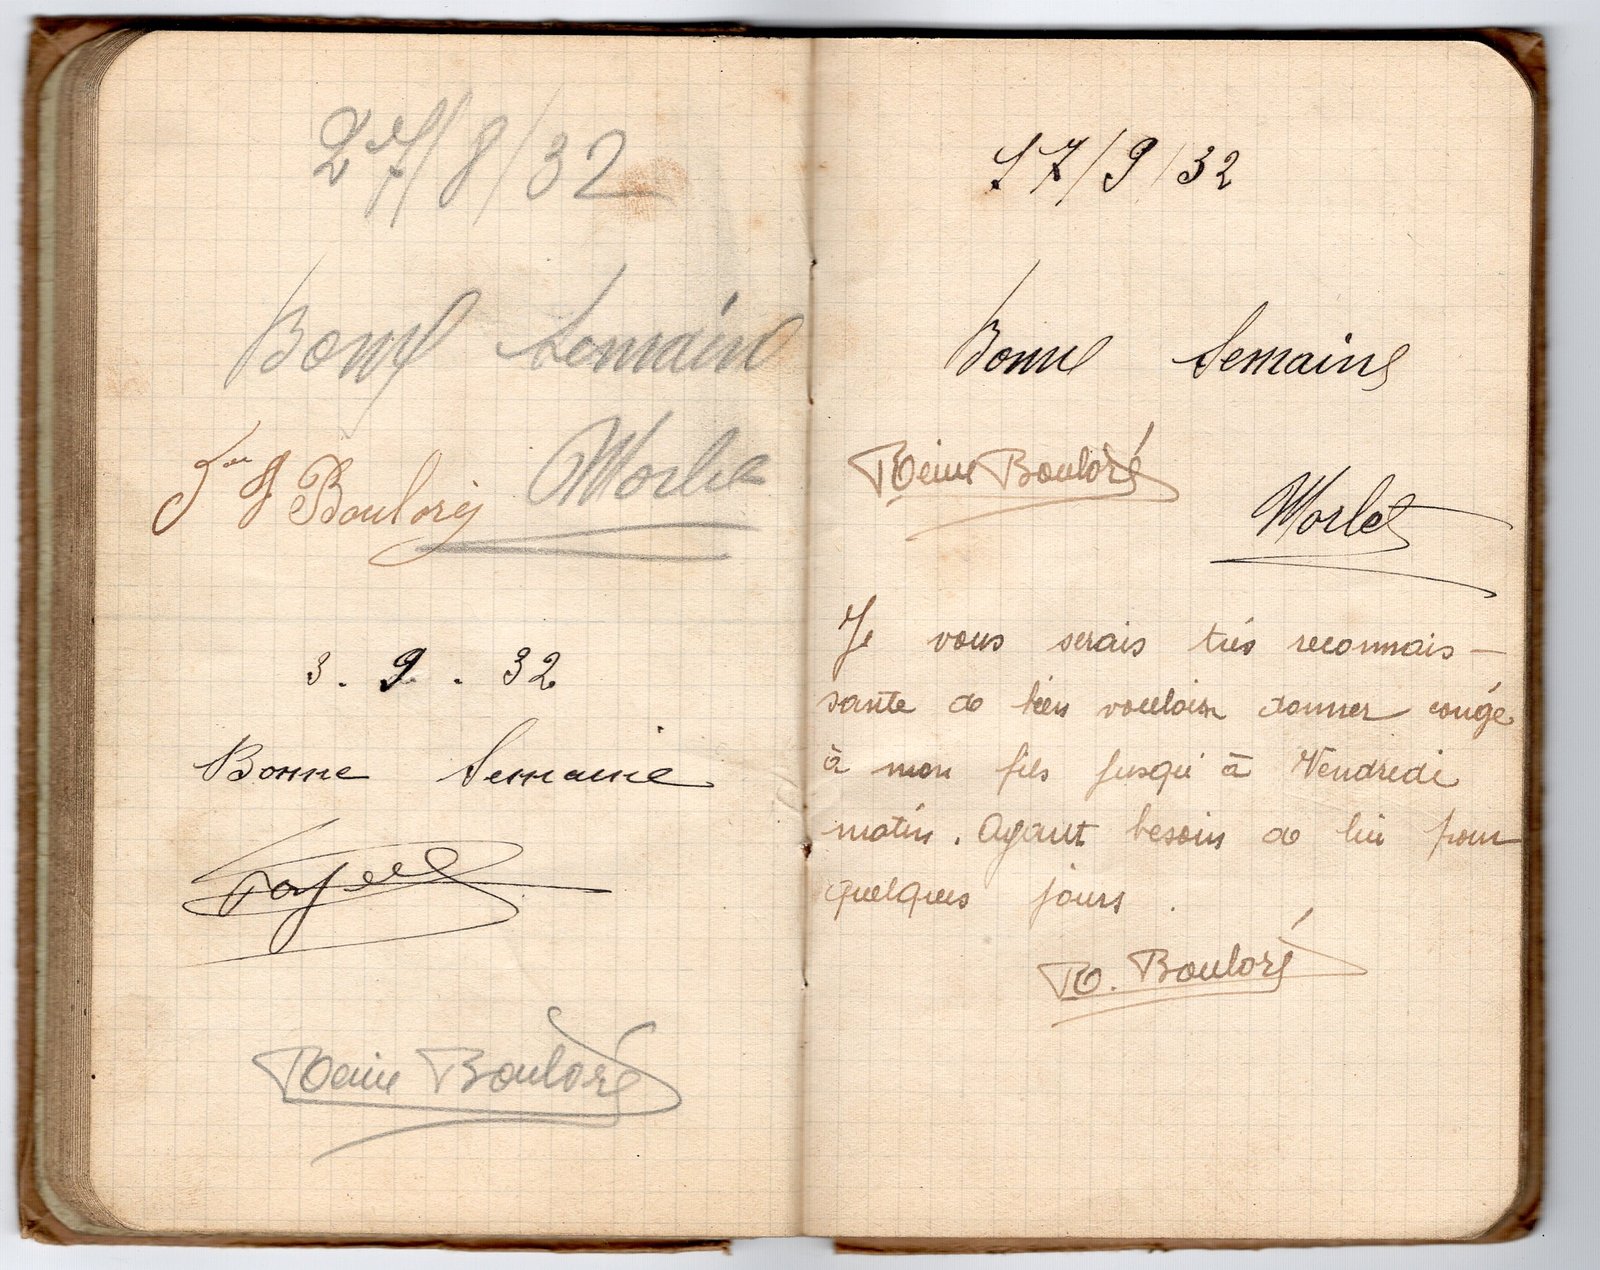 27/8/32
Bonne Semaine
Morlet
Bouloré
3. 9. 32
Bonne Semaine
Reine Bouloré
17/9/32
Bonne Semaine
Reine Bouloré
Morlet
Je vous serais très reconnais-
sante de bien vouloir donner congé
à mon fils jusqu'à Vendredi
matin. Ayant besoin de lui pour
quelques jours.
R. Bouloré